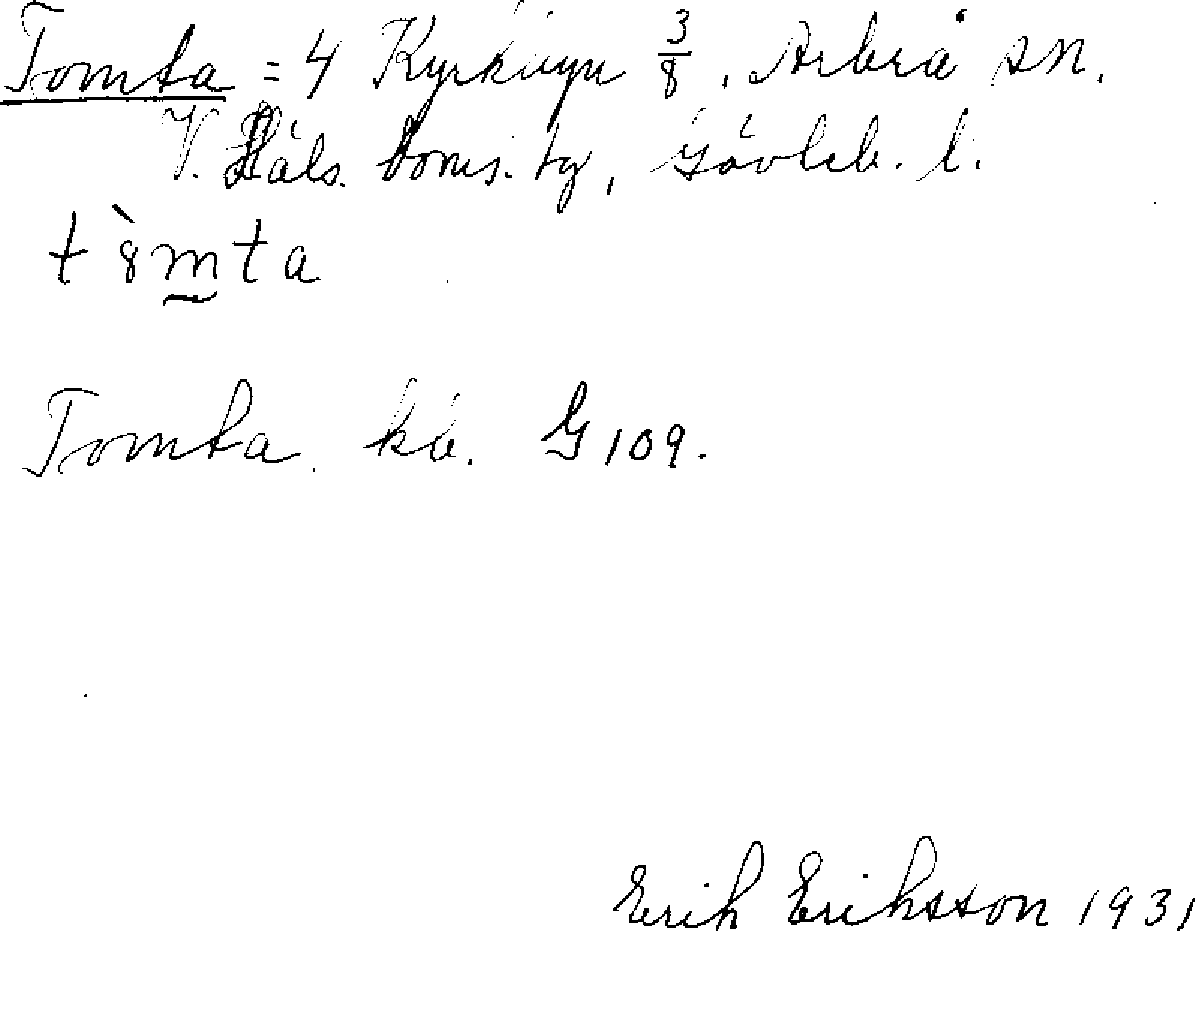 Tomta = 4 Kyrkbyn 3/8, Arbrå sn.
V. Häls. doms. tg, Gävleb. l.
t 8̀ m̰ t a
Tomta. kb. G 109.
Erik Eriksson 1931